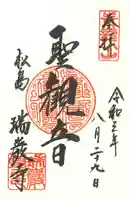 奉拝
令和年
八月二十九日
聖観音
松島
瑞巌寺